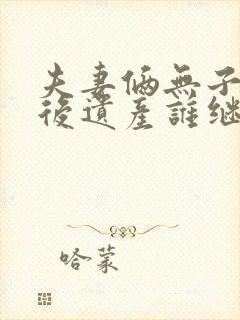 夫妻俩無子
後遺産誰继
哈蒙